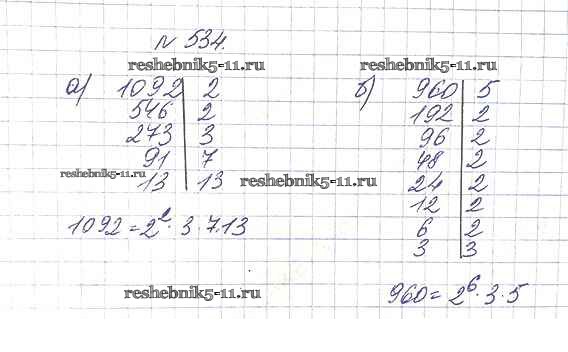 № 534.
reshebnik5-11.ru reshebnik5-11.ru
а) 1092 | 2
546 | 2
273 | 3
91 | 7
13 | 13
reshebnik5-11.ru reshebnik5-11.ru
1092 = 2² · 3 · 7 · 13
б) 960 | 5
192 | 2
96 | 2
48 | 2
24 | 2
12 | 2
6 | 2
3 | 3
reshebnik5-11.ru
960 = 2⁶ · 3 · 5